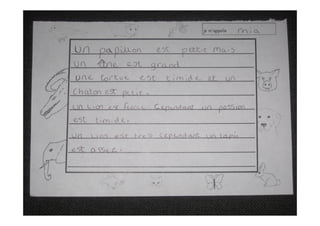 je m'appelle mia
Un papillon est petit mais
un âne est grand
une tortue est timide et un
chaton est petit.
un lion est fierce Cependant un poission
est timide.
un Lion est tres cependant un lapin
est assez.